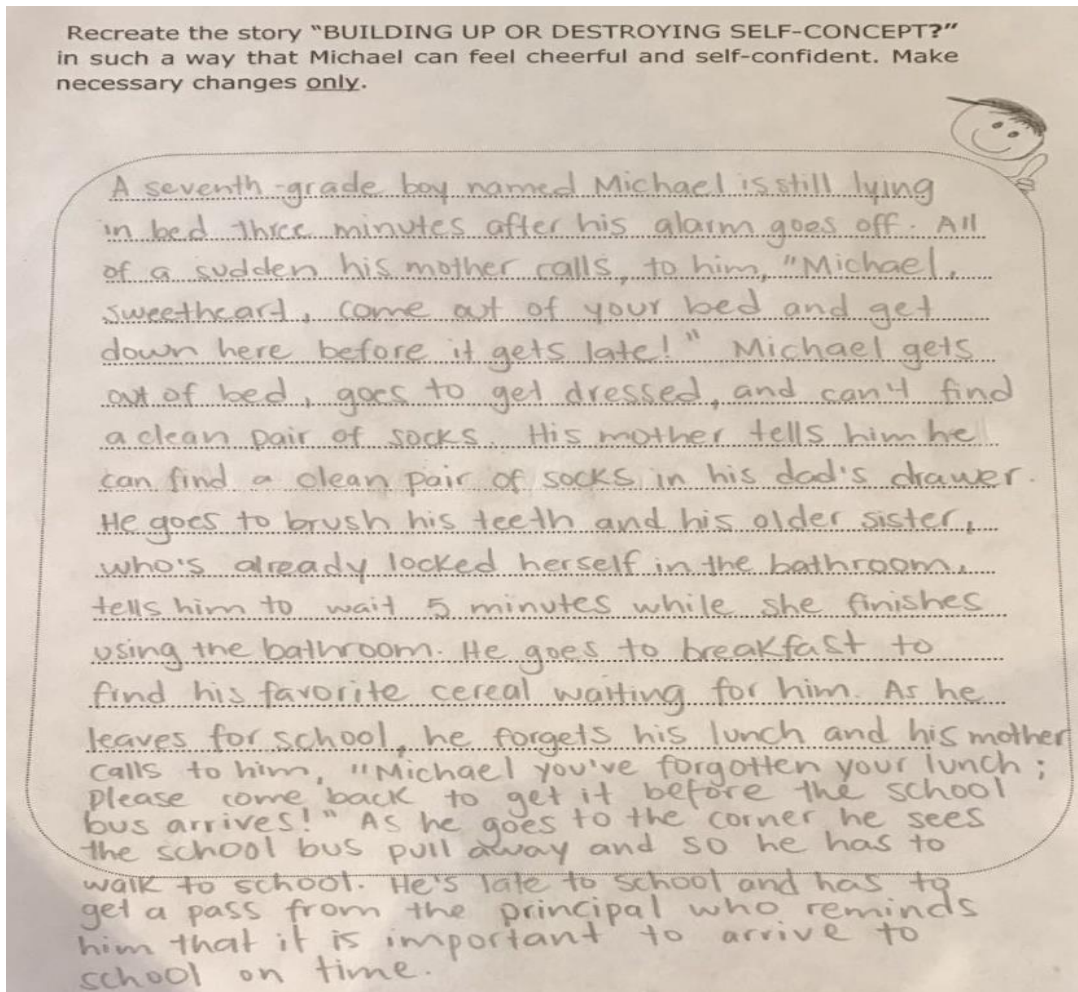 Recreate the story “BUILDING UP OR DESTROYING SELF-CONCEPT?”
in such a way that Michael can feel cheerful and self-confident. Make
necessary changes only.
A seventh-grade boy named Michael is still lying
in bed three minutes after his alarm goes off. All
of a sudden his mother calls, to him, "Michael,
sweetheart, come out of your bed and get
down here before it gets late!" Michael gets
out of bed, goes to get dressed, and can't find
a clean pair of socks. His mother tells him he
can find a clean pair of socks in his dad's drawer.
He goes to brush his teeth and his older sister,
who's already locked herself in the bathroom,
tells him to wait 5 minutes while she finishes
using the bathroom. He goes to breakfast to
find his favorite cereal waiting for him. As he
leaves for school, he forgets his lunch and his mother
calls to him, "Michael you've forgotten your lunch;
please come back to get it before the school
bus arrives!" As he goes to the corner he sees
the school bus pull away and so he has to
walk to school. He's late to school and has to
get a pass from the principal who reminds
him that it is important to arrive to
school on time.